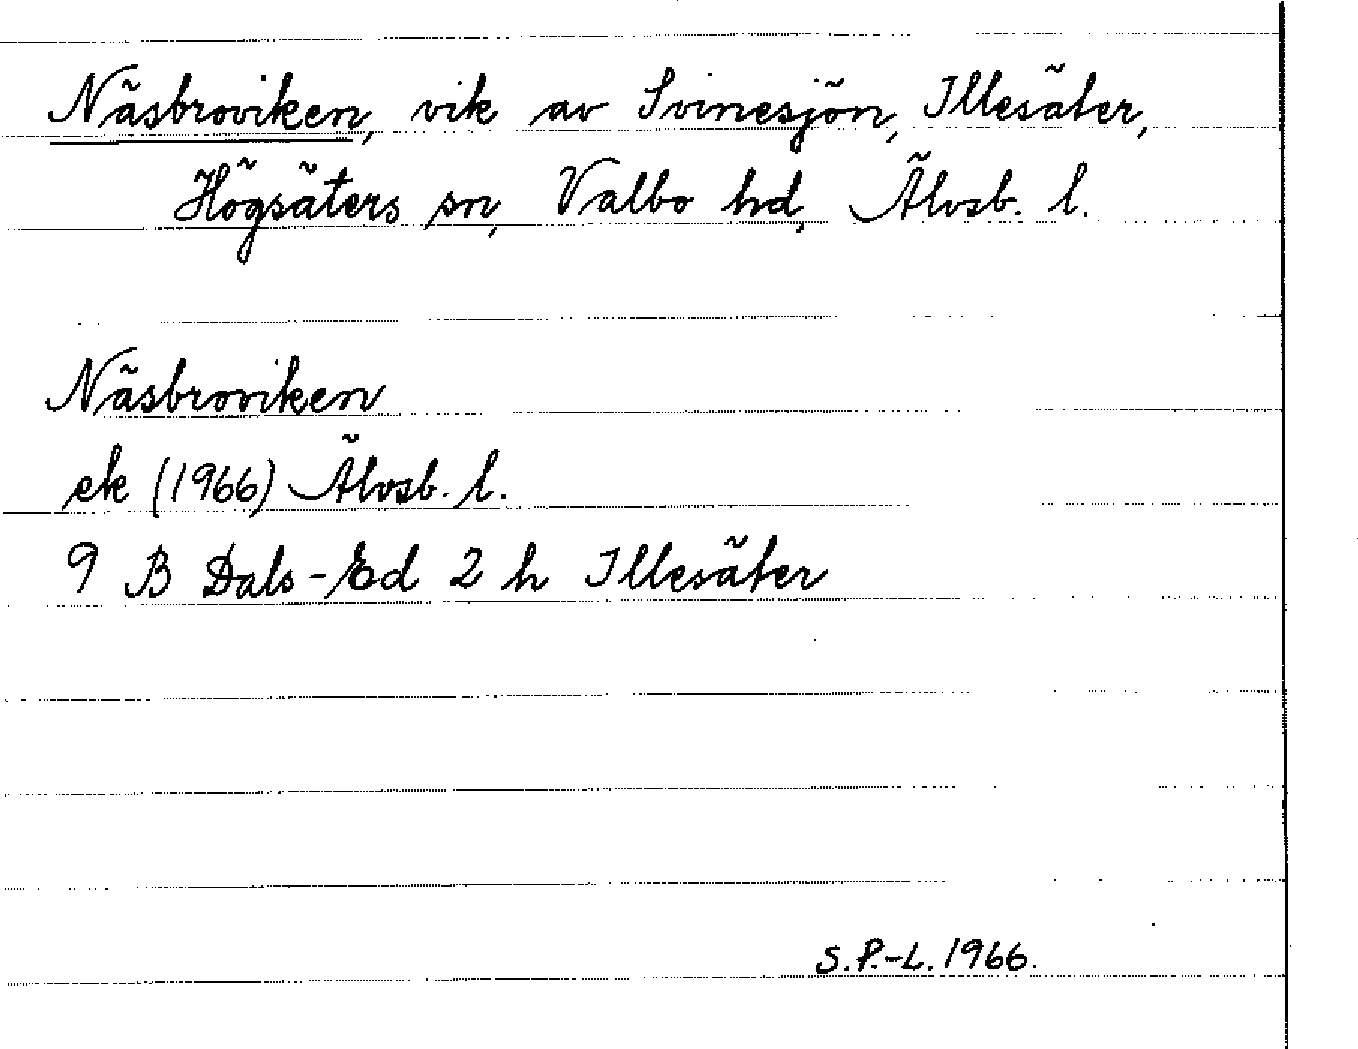 Näsbroviken, vik av Svinesjön, Illesäter,
Högsäters sn, Valbo hd, Älvsb. l.
Näsbroviken
ek (1966) Älvsb. l.
9 B Dals-Ed 2 h Illesäter
S.P.-L. 1966.